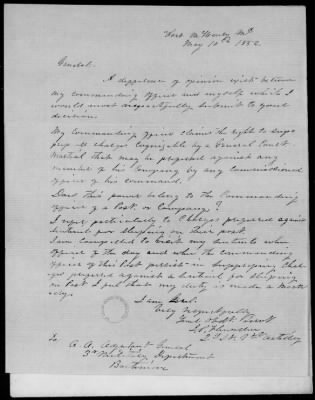 Fort McHenry Md.
May 10th 1852.
General.
A difference of opinion exists between
my commanding officer and myself which I
would most respectfully submit to your
decision.
My Commanding officer claims the right to
all charges cognizable by a General Court
Martial that may be preferred against any
member of his Company by any Commissioned
officer of his command.
Does this power belong to the Commanding
officer of a Post or Company?
I refer particularly to Charges preferred against
sentinels for sleeping on their post.
I am compelled to visit my sentinels when
officer of the day and when the commanding
officer of this Post persists in suppressing Char-
ges preferred against a sentinel for sleeping on
Post I feel that my duty is made a mock-
ery.
I am Genl.
Very respectfully
Your Obdt. Servt.
2d Lt. Artillery
To
A. A. Adjutant General
3d Military Department
Baltimore